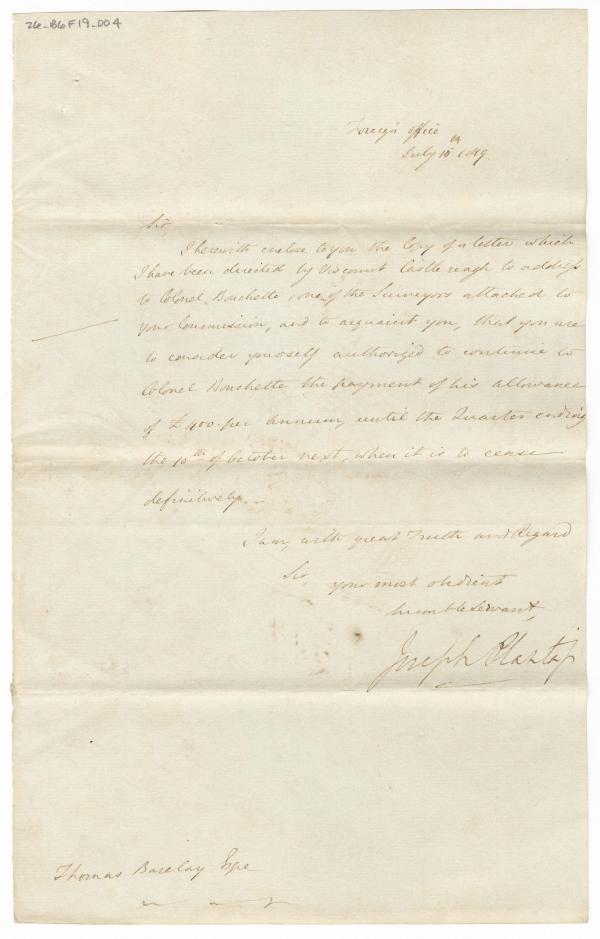 26-B6F19-004
Foreign Office
July 10th 1819.
Sir,
I herewith enclose to you the Copy of a letter which
I have been directed by Viscount Castlereagh to address
to Colonel Bouchette, one of the Surveyors attached to
your Commission, and to acquaint you, that you are
to consider yourself authorized to continue to
Colonel Bouchette the payment of his allowance
of £400. per annum, until the Quarter ending
the 10th of October next, when it is to cease
definitively.
I am, with great Truth and Regard
Sir,
your most obedient
humble Servant,
Joseph
Thomas Barclay Esqre